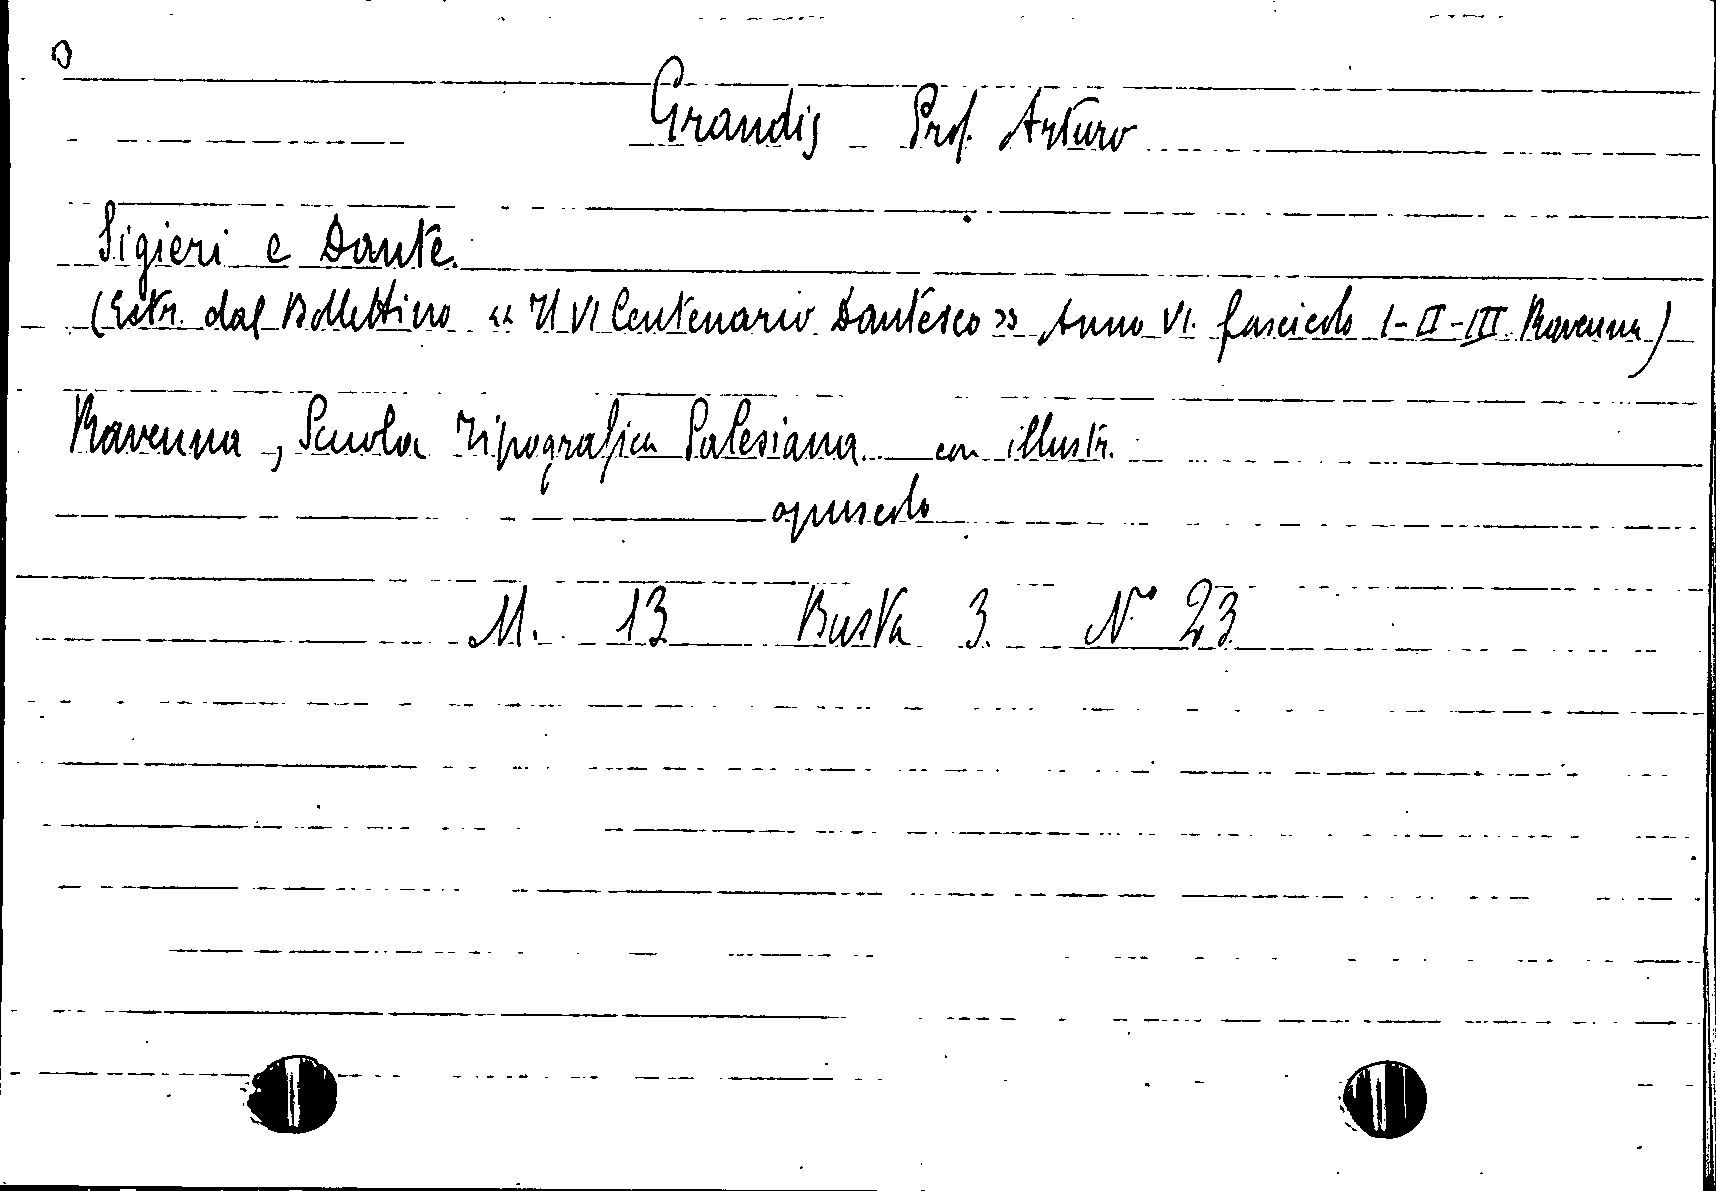 Grandis Prof. Arturo
Sigieri e Dante.
(Estr. dal Bollettino « Il VI Centenario Dantesco » Anno VI. fascicolo I-II-III Ravenna)
Ravenna, Scuola Tipografica Salesiana con illustr.
opuscolo
M. 13 Busta 3. N° 23